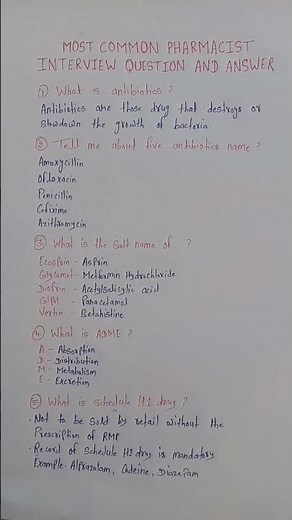 MOST COMMON PHARMACIST
INTERVIEW QUESTION AND ANSWER
① What is antibiotics?
Antibiotics are those drug that destroys or
slowdown the growth of bacteria
② Tell me about five antibiotics name?
Amoxycillin
Ofloxacin
Penicillin
Cefixime
Azithromycin
③ What is the Salt name of ?
Ecosprin - Asprin
Glycomet - Metformin Hydrochloride
Disprin - Acetylsalicylic acid
Calpol - Paracetamol
Vertin - Betahistine
④ What is ADME?
A - Absorption
D - Distribution
M - Metabolism
E - Excretion
⑤ What is Schedule H1 drug?
• Not to be Sold by retail without the
Prescription of RMP
• Record of Schedule H1 drug is mandatory
Example - Alprazolam, Codeine, Diazepam